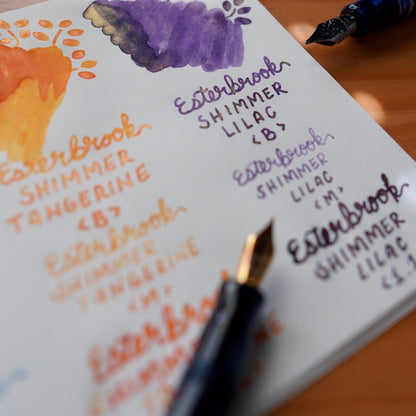 Esterbrook
SHIMMER
TANGERINE
<B>
Esterbrook
SHIMMER
TANGERINE
<M>
Esterbrook
SHIMMER
Esterbrook
SHIMMER
LILAC
<B>
Esterbrook
SHIMMER
LILAC
<M>
Esterbrook
SHIMMER
LILAC
<1.1